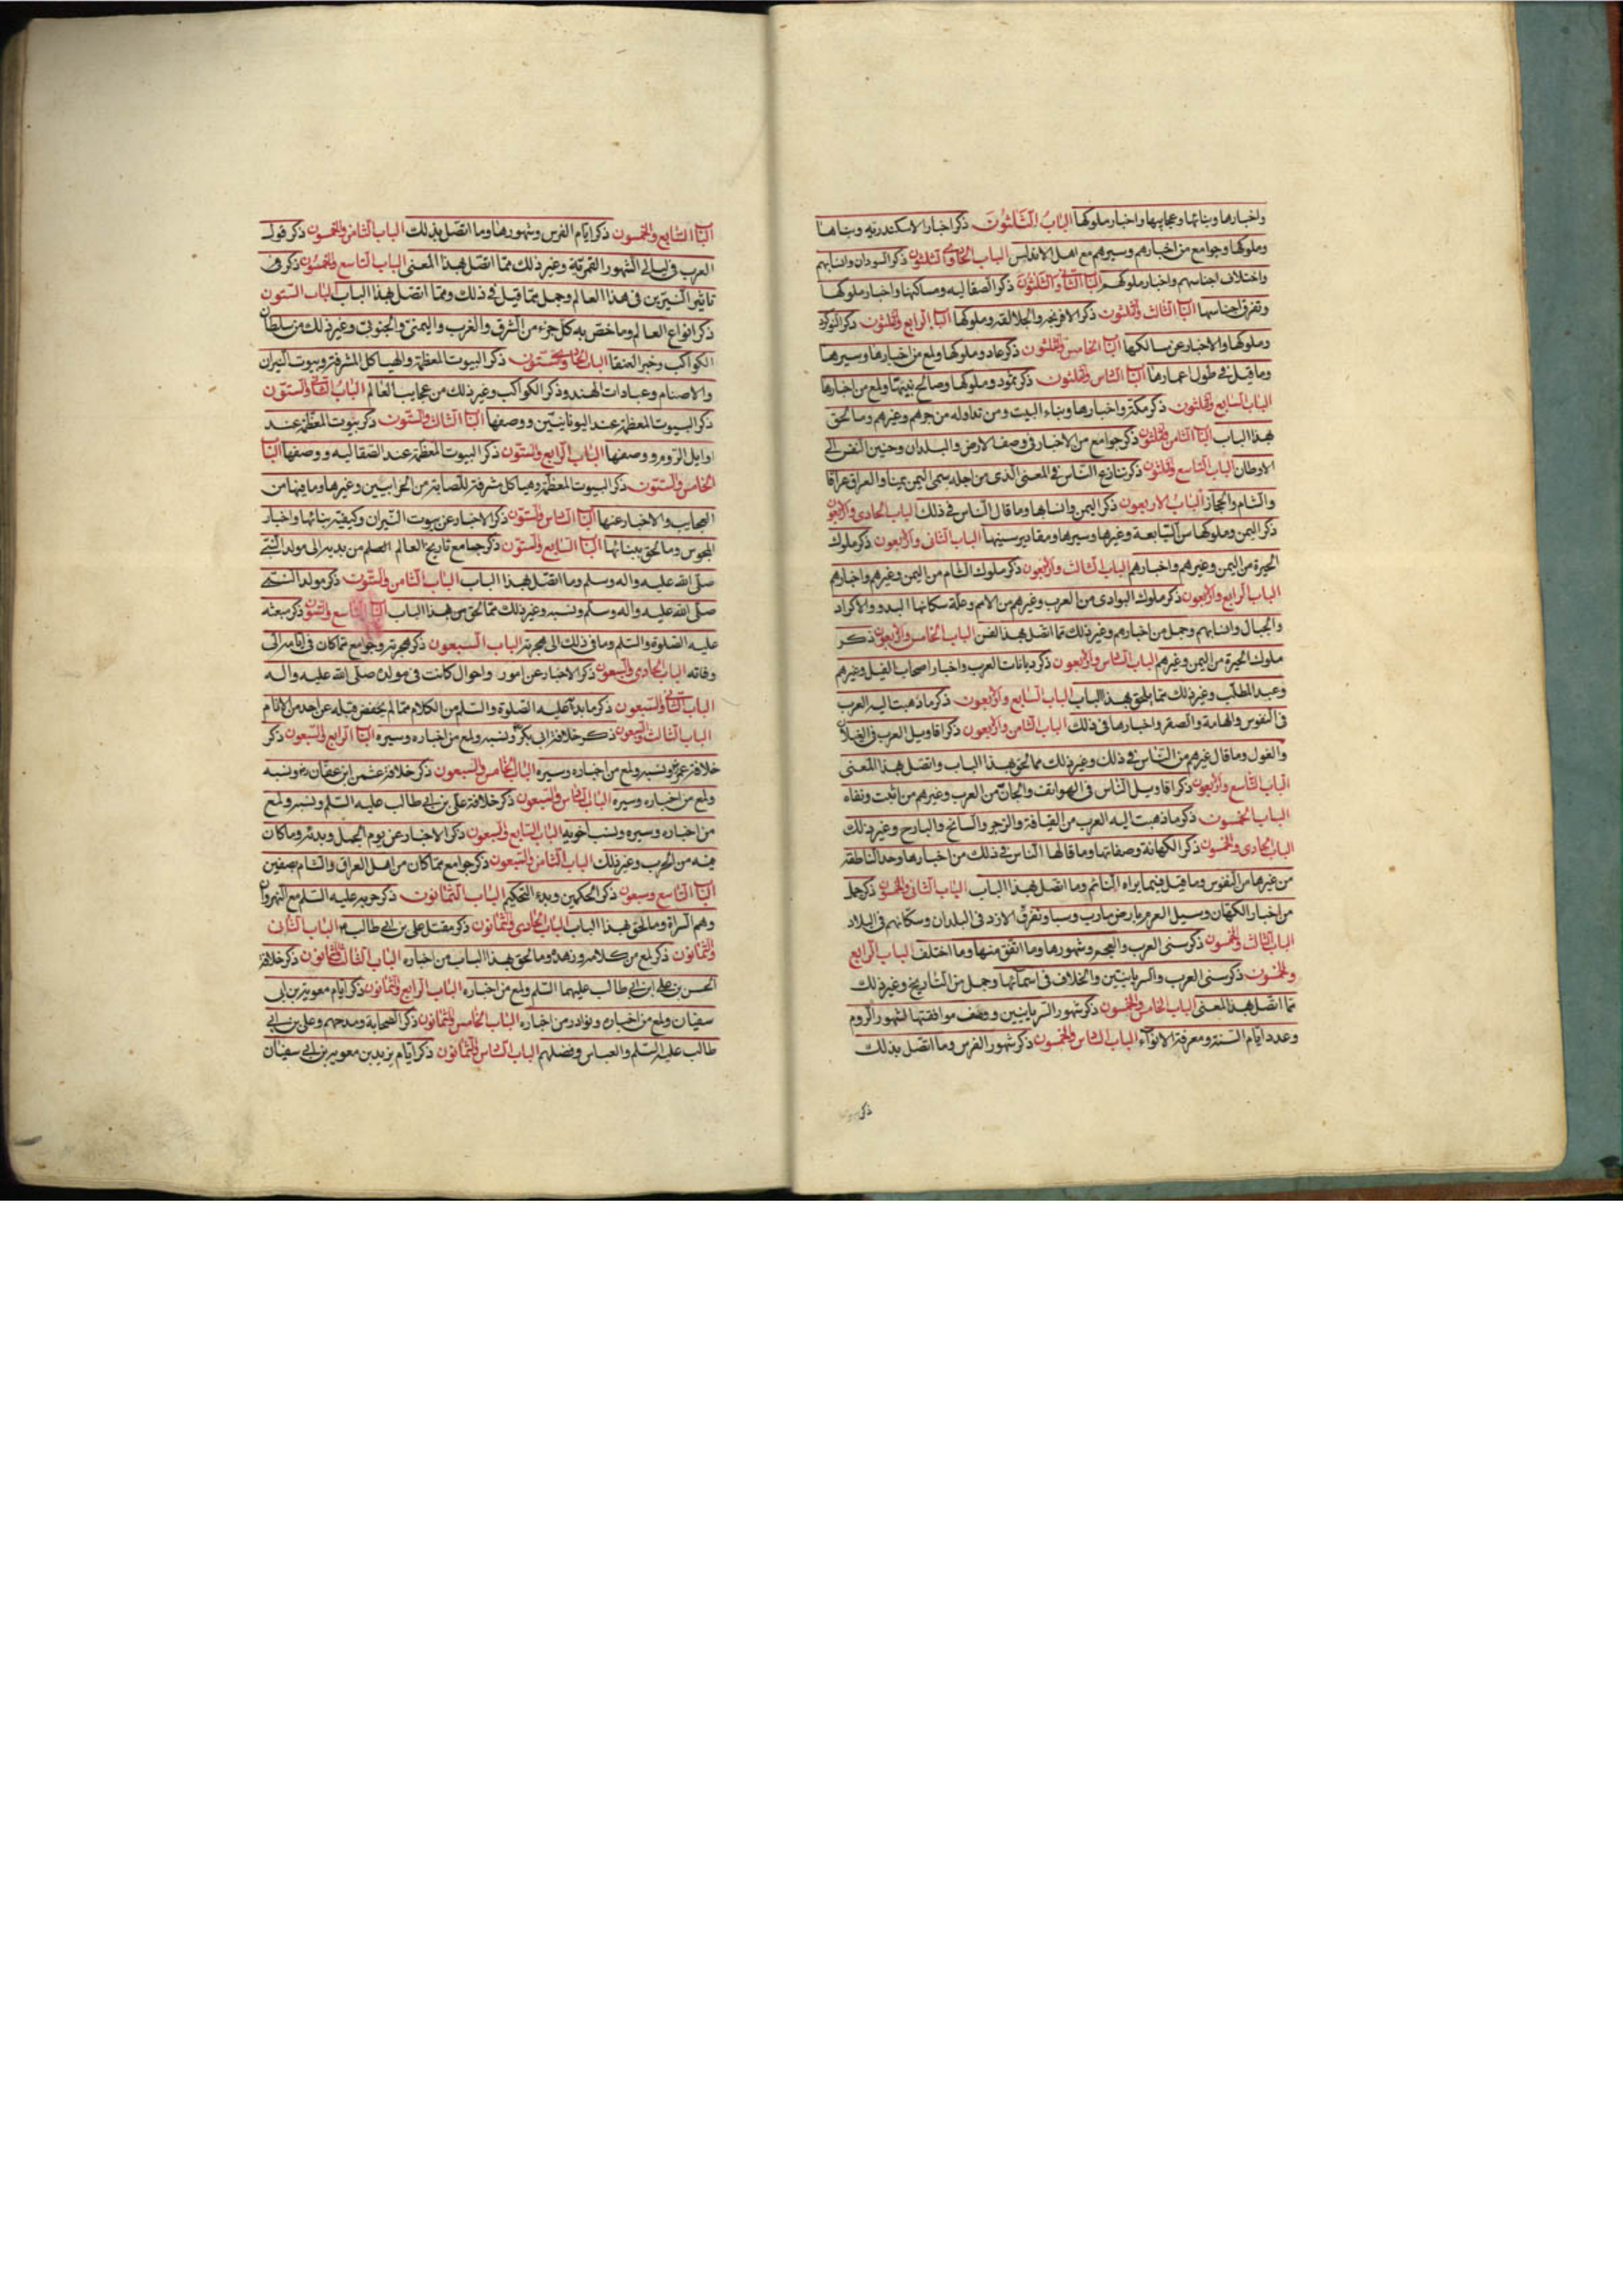 واخبارها وبنائها وعجايبها واخبار ملوكها الباب الثلثون ذكر اخبار الاسكندرية وبناها
وملوكها وجوامع من اخبارهم وسيرهم مع اهل الاندلس الباب الحادى والثلثون ذكر السودان وانسابهم
واختلاف اجناسهم واخبار ملوكهم الباب الثانى والثلثون ذكر الصقاليه ومساكنها واخبار ملوكها
وتفرق اجناسها الباب الثالث والثلثون ذكر الافرنجه والجلالقه وملوكها الباب الرابع والثلثون ذكر النوكرد
وملوكها والاخبار عن مسالكها الباب الخامس والثلثون ذكر عاد وملوكها ولمع من اخبارها وسيرها
وما قيل فى طول اعمارها الباب السادس والثلثون ذكر ثمود وملوكها وصالح نبيها ولمع من اخبارها
الباب السابع والثلثون ذكر مكة واخبارها وبناء البيت ومن تداوله من جرهم وغيرهم وما لحق
بهذا الباب الباب الثامن والثلثون ذكر جوامع من الاخبار فى وصف الارض والبلدان وحنين النفس الى
الاوطان الباب التاسع والثلثون ذكر تنازع الناس فى المعنى الذى من اجله سمى اليمن يمينا والعراق عراقا
والشام والحجاز الباب الاربعون ذكر اليمن وانسابها وما قال الناس فى ذلك الباب الحادى والاربعون
ذكر اليمن وملوكها من التبابعة وغيرها وسيرها ومقادير سنيها الباب الثانى والاربعون ذكر ملوك
الحيرة من اليمن وغيرهم واخبارهم الباب الثالث والاربعون ذكر ملوك الشام من اليمن وغيرهم واخبارهم
الباب الرابع والاربعون ذكر ملوك البوادى من العرب وغيرهم من الامم وعلة سكناها البدو والاكراد
والجبال وانسابهم وجمل من اخبارهم وغير ذلك مما اتصل بهذا الفن الباب الخامس والاربعون ذكر
ملوك الحيرة من اليمن وغيرهم الباب السادس والاربعون ذكر ديانات العرب واخبار اصحاب الفيل وغيرهم
وعبد المطلب وغير ذلك مما يلحق بهذا الباب الباب السابع والاربعون ذكر ما ذهبت اليه العرب
فى النفوس والهامة والصقر واخبارها فى ذلك الباب الثامن والاربعون ذكر اقاويل العرب فى الغيلان
والغول وما قال غيرهم من الناس فى ذلك وغير ذلك مما لحق بهذا الباب واتصل بهذا المعنى
الباب التاسع والاربعون ذكر اقاويل الناس فى الهواتف والجان من العرب وغيرهم من اثبت ونفاه
الباب الخمسون ذكر ما ذهبت اليه العرب من القيافة والزجر والسانح والبارح وغير ذلك
الباب الحادى والخمسون ذكر الكهانة وصفاتها وما قالها الناس فى ذلك من اخبارها وحد الناطقه
من غيرها من النفوس وما قيل فيما يراه النائم وما اتصل بهذا الباب الباب الثانى والخمسون ذكر جمل
من اخبار الكهان وسيل العرم بارض مارب وسبا وتفرق الازد فى البلدان وسكانهم فى البلاد
الباب الثالث والخمسون ذكر سنى العرب والعجم وشهورها وما اتفق منها وما اختلف الباب الرابع
والخمسون ذكر سنى العرب والسريانيين والخلاف فى اسمائها وجمل من التاريخ وغير ذلك
مما اتصل بهذا المعنى الباب الخامس والخمسون ذكر شهور السريانيين ووصف موافقتها لشهور الروم
وعدد ايام السنة ومعرفة الانواء الباب السادس والخمسون ذكر شهور الفرس وما اتصل بذلك
الباب السابع والخمسون ذكر ايام الفرس وشهورها وما اتصل بذلك الباب الثامن والخمسون ذكر قول
العرب فى ليالى الشهور القمرية وغير ذلك مما اتصل بهذا المعنى الباب التاسع والخمسون ذكر فى
تاثير النيرين فى هذا العالم وجمل مما قيل فى ذلك ومما اتصل بهذا الباب الباب الستون
ذكر انواع العالم وما خص به كل جزء من الشرق والغرب واليمنى والجنوبى وغير ذلك من سلطان
الكواكب وخبر العنقا الباب الحادى والستون ذكر البيوت المعظمة والهياكل المشرفة وبيوت النيران
والاصنام وعبادات الهند وذكر الكواكب وغير ذلك من عجايب العالم الباب الثانى والستون
ذكر البيوت المعظمة عند اليونانيين ووصفها الباب الثالث والستون ذكر بيوت المعظمة عند
اوايل الروم ووصفها الباب الرابع والستون ذكر البيوت المعظمة عند الصقاليه ووصفها الباب
الخامس والستون ذكر البيوت المعظمة وهياكل مشرفة للصابية من الحرانيين وغيرها وما فيها من
العجايب والاخبار عنها الباب السادس والستون ذكر الاخبار عن بيوت النيران وكيفية بنائها واخبار
المجوس وما لحق ببنائها الباب السابع والستون ذكر جامع تاريخ العالم من بديه الى مولد النبى
صلى الله عليه واله وسلم وما اتصل بهذا الباب الباب الثامن والستون ذكر مولد النبى
صلى الله عليه واله وسلم ونسبه وغير ذلك مما لحق من هذا الباب الباب التاسع والستون ذكر مبعثه
عليه الصلوة والسلم وما فى ذلك الى هجرته الباب السبعون ذكر هجرته وجوامع مما كان فى ايامه الى
وفاته الباب الحادى والسبعون ذكر الاخبار عن امور واحوال كانت فى مولده صلى الله عليه واله
الباب الثانى والسبعون ذكر ما بدا عليه الصلوة والسلم من الكلام مما لم يحفظ قبله عن احد من الانام
الباب الثالث والسبعون ذكر خلافة ابى بكر ونسبه ولمع من اخباره وسيره الباب الرابع والسبعون ذكر
خلافة عمر ونسبه ولمع من اخباره وسيره الباب الخامس والسبعون ذكر خلافة عثمن ابن عفان ونسبه
ولمع من اخباره وسيره الباب السادس والسبعون ذكر خلافة على بن ابى طالب عليه السلم ونسبه ولمع
من اخباره وسيره ونسب اخويه الباب السابع والسبعون ذكر الاخبار عن يوم الجمل وبدئه وما كان
فيه من الحرب وغير ذلك الباب الثامن والسبعون ذكر جوامع مما كان من اهل العراق والشام بصفين
الباب التاسع وسبعون ذكر الحكمين وبدء التحكيم الباب الثمانون ذكر حربه عليه السلم مع النهروان
وهم الشراة وما لحق بهذا الباب الباب الحادى والثمانون ذكر مقتل على بن ابى طالب الباب الثانى
والثمانون ذكر لمع من كلامه وزهده وما لحق بهذا الباب من اخباره الباب الثالث والثمانون ذكر خلافة
الحسن بن على ابن ابى طالب عليهما السلم ولمع من اخباره الباب الرابع والثمانون ذكر ايام معوية بن ابى
سفيان ولمع من اخباره ونوادر من اخباره الباب الخامس والثمانون ذكر الصحابة ومدحهم وعلى بن ابى
طالب عليه السلم والعباس وفضلهم الباب السادس والثمانون ذكر ايام يزيد بن معوية بن ابى سفيان